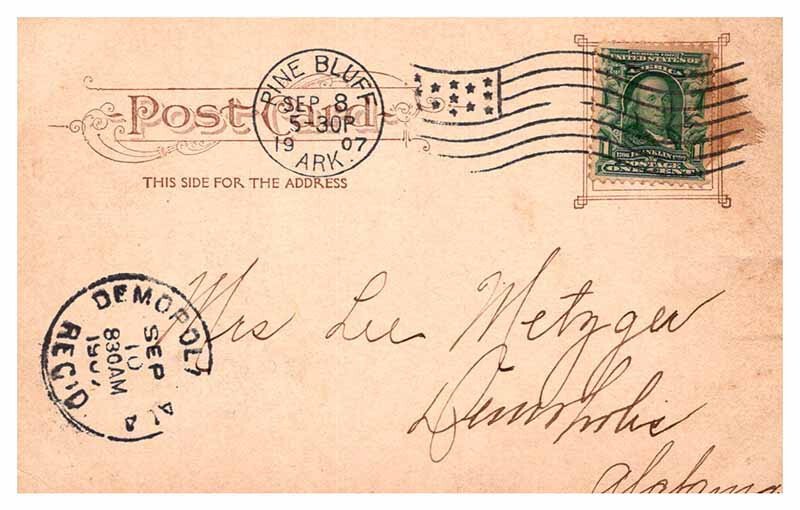 Post Card
THIS SIDE FOR THE ADDRESS
PINE BLUFF
SEP 8
5-30P
19 07
ARK.
SERIES 1902
UNITED STATES OF
AMERICA
1 1
FRANKLIN
POSTAGE
ONE CENT
DEMOPOLI
SEP
10
830AM
1907
ALA
REC'D
Mrs Lee Metzger
Demopolis
Alabama